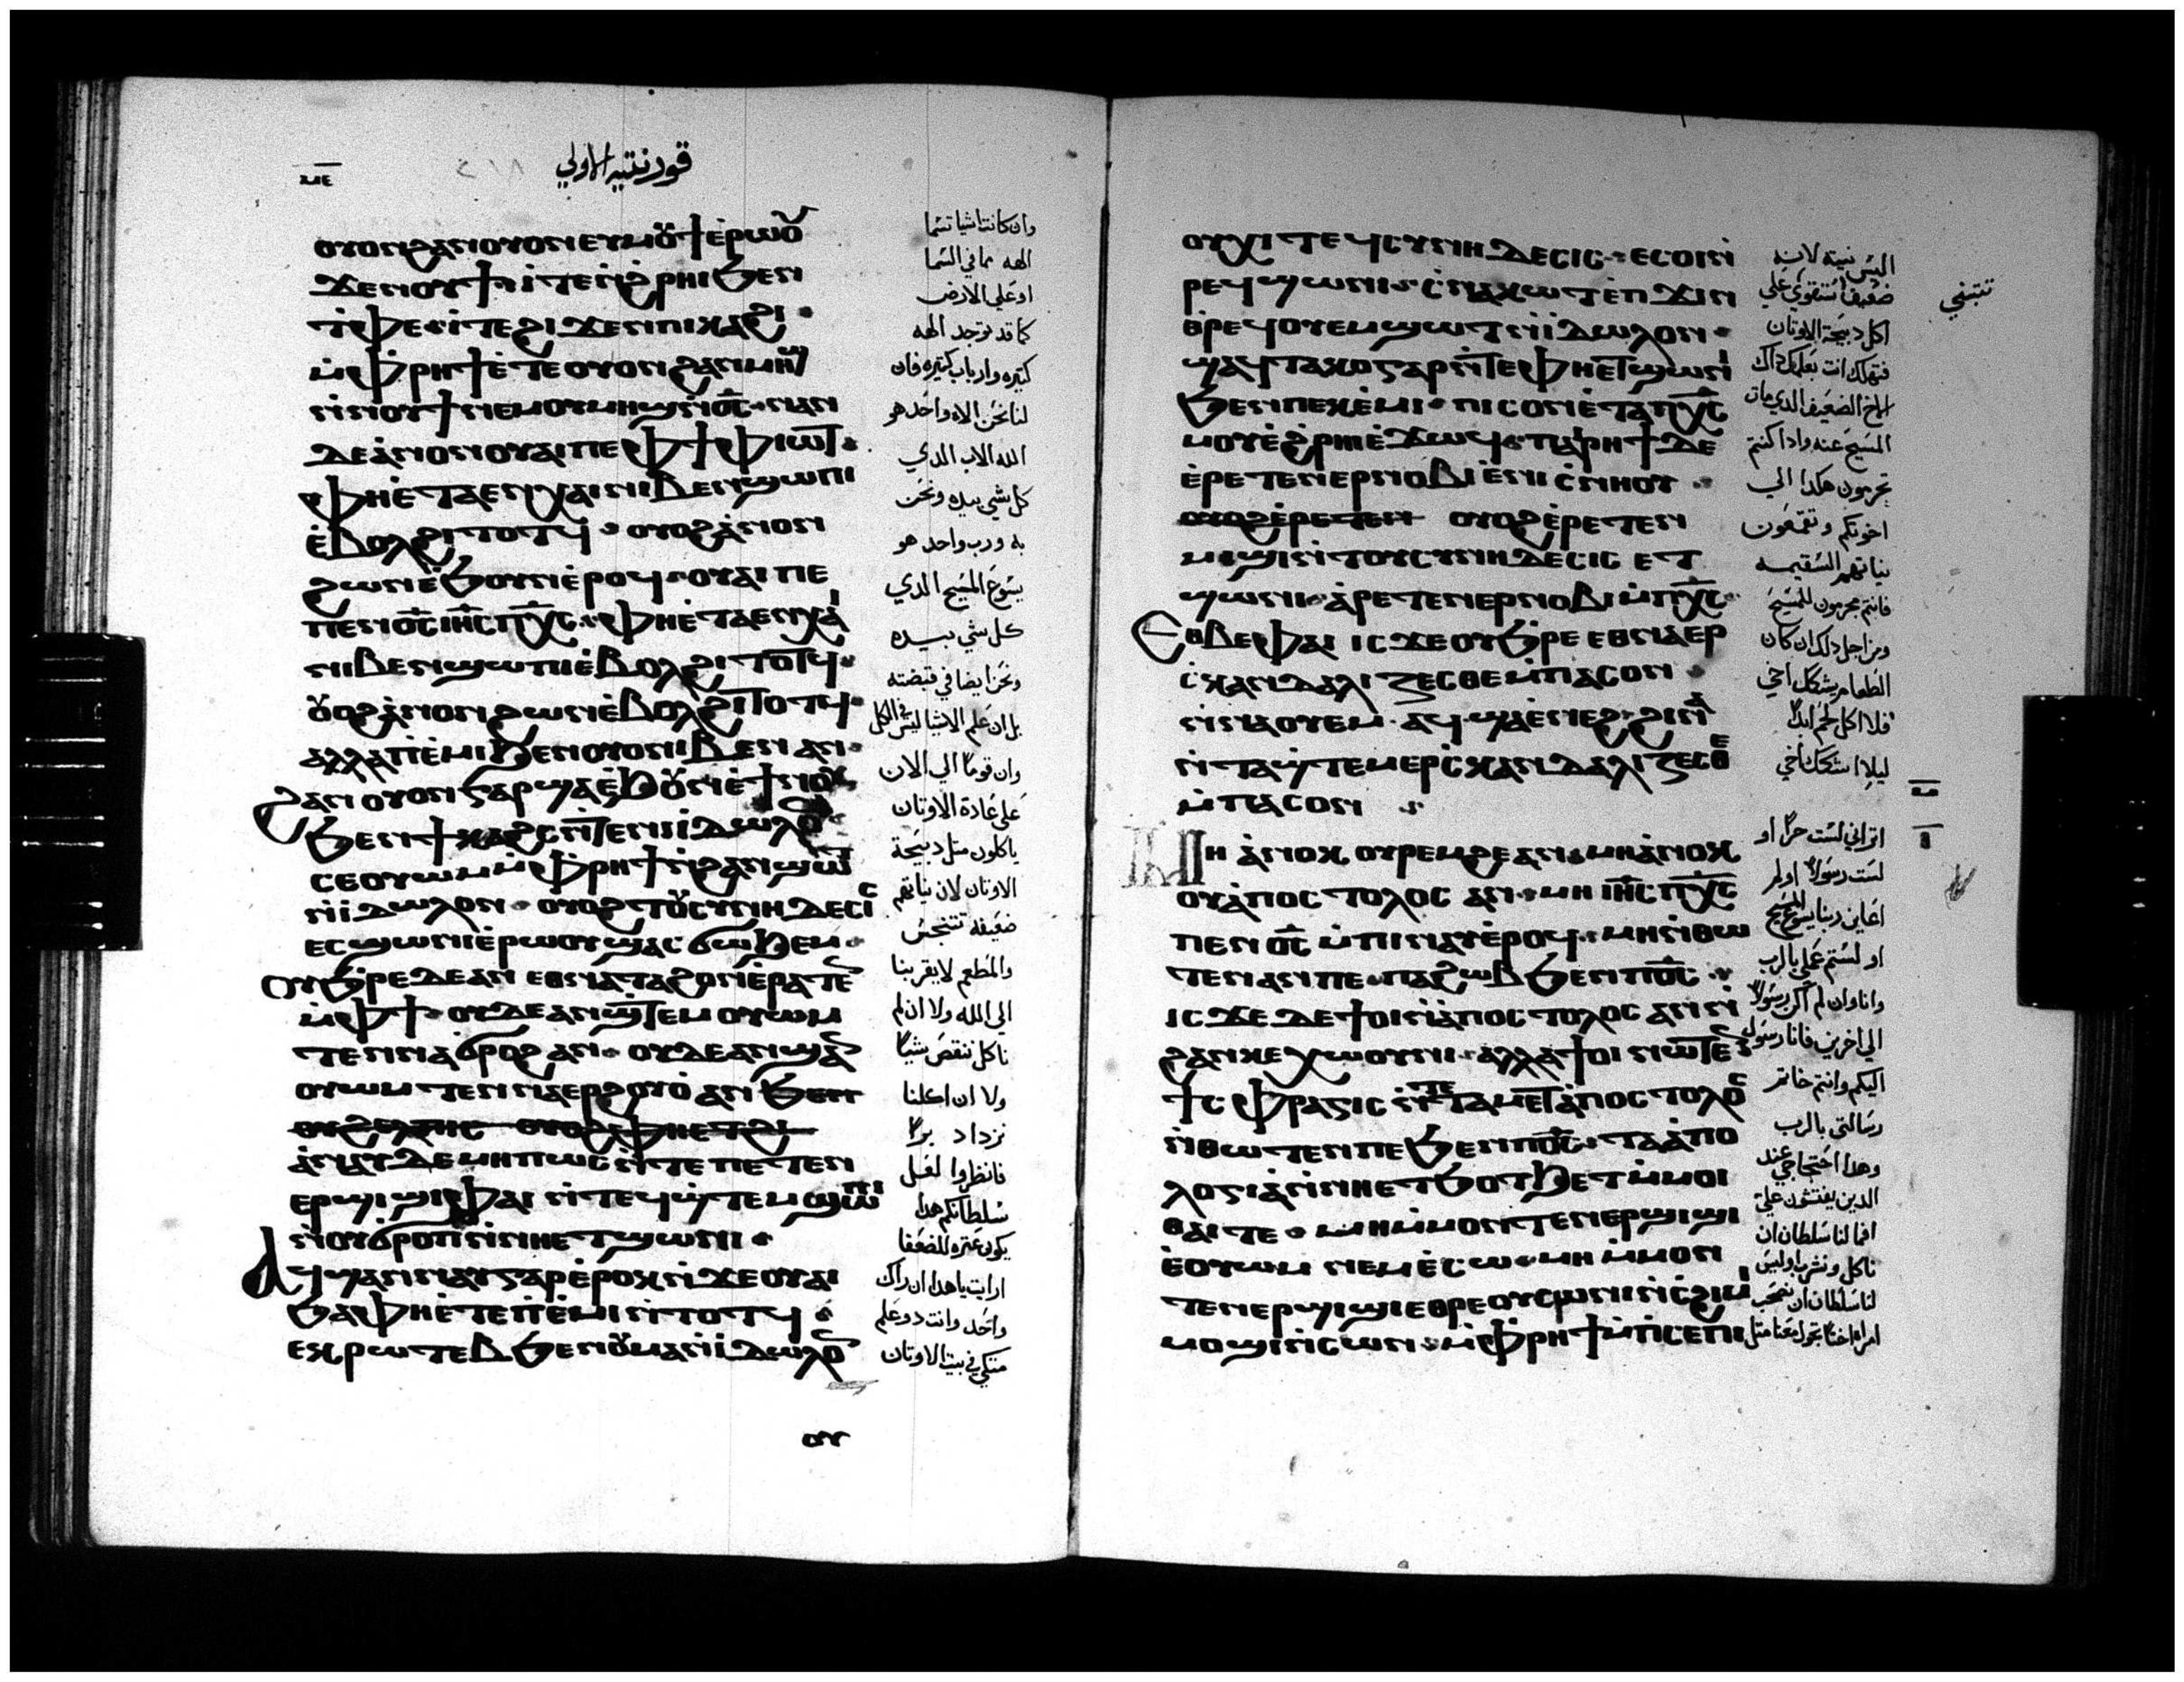 قورنتيه الاولي
ⲟⲩⲟⲛϩⲁⲛⲟⲩⲟⲛⲉⲩⲙȣϯⲉ̀ⲣⲱȣ
ϫⲉⲛⲟⲩϯ ⲓⲧⲉⲛ̀ϩ̀ⲣⲏⲓϧⲉⲛ
ⲧ̀ⲫⲉ ⲓⲧⲉϩⲓϫⲉⲛⲡⲓⲕⲁϩⲓ
ⲙ̀ⲫ̀ⲣⲏϯⲉ̀ⲧⲉⲟⲩⲟⲛϩⲁⲛⲙⲏϣ
ⲛ̀ⲛⲟⲩϯⲛⲉⲙⲟⲩⲙⲏϣⲛ̀ⲟ̅ⲥ̅ ⲛⲁⲛ
ⲇⲉⲁ̀ⲛⲟⲛⲟⲩⲁⲓⲡⲉⲫϯⲫⲓⲱⲧ
ⲫⲏⲉ̀ⲧⲁⲉⲛⲭⲁⲓⲛⲓⲃⲉⲛϣⲱⲡⲓ
ⲉ̀ⲃⲟⲗϩⲓⲧⲟⲧϥ ⲟⲩⲟϩⲁ̀ⲛⲟⲛ
ϩⲱⲛⲉ̀ϧⲟⲩⲛⲉ̀ⲣⲟϥ ⲟⲩⲁⲓⲡⲉ
ⲡⲉⲛⲟ̅ⲥ̅ⲓⲏ̅ⲥ̅ⲡⲭ̅ⲥ̅ ⲫⲏⲉ̀ⲧⲁⲉⲛⲭⲁⲓ
ⲛⲓⲃⲉⲛϣⲱⲡⲓⲉ̀ⲃⲟⲗϩⲓⲧⲟⲧϥ
ȣⲟϩⲁ̀ⲛⲟⲛϩⲱⲛⲉ̀ⲃⲟⲗϩⲓⲧⲟⲧϥ
ⲁⲗⲗⲁⲡⲓⲉ̀ⲙⲓϧⲉⲛⲟⲩⲟⲛⲓⲃⲉⲛ ⲁⲛ
ϩⲁⲛ ⲟⲩⲟⲛⲅⲁⲣϣⲁⲉ̀ϧȣⲛⲉ̀ϯⲛⲟⲩ
ϧⲉⲛϯⲕⲁϩⲥⲛ̀ⲧⲉⲛⲓⲓ̀ⲇⲱⲗⲟ
ⲥⲉⲟⲩⲱⲙⲙ̀ⲫ̀ⲣⲏϯⲛ̀ϩⲁⲛϣⲱⲧ
ⲛ̀ⲓ̀ⲇⲱⲗⲟⲛ ⲟⲩⲟϩⲧȣⲥⲩⲛⲏⲇⲉⲥⲓⲥ
ⲉⲥϣⲱⲛⲓⲉ̀ⲣⲱⲟⲩϣⲁⲥϭⲱϧⲉⲙ
ⲟⲩϧⲣⲉⲇⲉⲁⲛ ⲉⲑⲛⲁⲧⲁϩⲟⲛⲉ̀ⲣⲁⲧⲉⲛ
ⲙ̀ⲫϯ ⲟⲩⲇⲉⲁⲛϣ̀ⲧⲉⲙ ⲟⲩⲱⲙ
ⲧⲉⲛⲛⲁϭⲣⲟϩ ⲁⲛ ⲟⲩⲇⲉⲁⲛϣⲁⲛ
ⲟⲩⲱⲙ ⲧⲉⲛⲛⲁⲉⲣϩⲟⲩⲟ̀ ⲁⲛ ϧⲉⲛ
ⲁⲛⲁⲩ ⲇⲉ ⲙⲏⲡⲱⲥ ⲛ̀ⲧⲉ ⲡⲉⲧⲉⲛ
ⲉⲣϣⲓϣⲓⲫⲁⲓ ⲛ̀ⲧⲉϥϣ̀ⲧⲉⲙϣⲱⲡⲓ
ⲛⲟⲩϭⲣⲟⲡⲛ̀ⲛⲏⲉⲧϣⲱⲛⲓ
ⲁϥϣⲁⲛⲛⲁⲩⲅⲁⲣⲉ̀ⲣⲟⲕⲛ̀ϫⲉⲟⲩⲁⲓ
ϧⲁⲫⲏⲉ̀ⲧⲉⲡⲓⲉ̀ⲙⲓⲛ̀ⲧⲟⲧϥ
ⲉⲕⲣⲱⲧⲉⲃϧⲉⲛȣⲙⲁⲛⲓ̀ⲇⲱⲗⲟⲛ
ⲟⲩ
وان كانت اشيا تسما
الهه مما في السما
او علي الارض
كما قد توجد الهه
كتيره وارباب كتيره فان
لنا نحن الاه واحد هو
الله الاب الدي
كل شي بيده ونحن
به ورب واحد هو
يسوع المسيح الدي
كل شي بيده
ونحن ايضا في قبضته
بل ان علم الاشيا ليس في الكل
وان قوما الي الان
علي عادة الاوتان
ياكلون متل دبيحة
الاوتان لان نياتهم
ضعيفه تتنجس
والمطعم لا يقربنا
الي الله ولا ان لم
ناكل ننقص شيا
ولا ان اكلنا
نزداد برا
فانظروا لعل
سلطانكم هدا
يكون عتره للضعفا
ارايت يا هدا ان راك
واحد وانت دو علم
متكي في بيت الاوتان
ⲟⲩⲭⲓ ⲧⲉϥⲥⲩⲛⲏⲇⲉⲥⲓⲥ ⲉⲥⲟⲓⲛ̀
ⲣⲉϥϣⲱⲛⲓ ⲥ̀ⲛⲁⲕⲱⲧ ⲉ̀ⲡ ϫⲓⲛ
ⲑ̀ⲣⲉϥⲟⲩⲉⲙϣⲱⲧⲛ̀ⲓ̀ⲇⲱⲗⲟⲛ
ϣⲁϥⲧⲁⲕⲟⲅⲁⲣⲛ̀ⲧⲉⲫⲏⲉⲧϣⲱⲛⲓ
ϧⲉⲛⲡⲉⲕⲉ̀ⲙⲓ ⲡⲓⲥⲟⲛⲉ̀ⲧⲁⲡⲭ̅ⲥ̅
ⲙⲟⲩⲉ̀ϩ̀ⲣⲏⲓⲉ̀ϫⲱϥ ⲡⲁⲓⲣⲏϯ ⲇⲉ
ⲉ̀ⲣⲉⲧⲉⲛⲉⲣⲛⲟⲃⲓ ⲉ̀ⲛⲓⲥ̀ⲛⲏⲟⲩ
ⲟⲩⲟϩⲉ̀ⲣⲉⲧⲉⲛ ⲟⲩⲟϩⲉ̀ⲣⲉⲧⲉⲛ
ⲙⲓϣⲓⲛ̀ⲧⲟⲩⲥⲩⲛⲏⲇⲉⲥⲓⲥ ⲉⲧ
ϣⲱⲛⲓ ⲁ̀ⲣⲉⲧⲉⲛⲉⲣⲛⲟⲃⲓ ⲙ̀ⲡⲭ̅ⲥ̅
ⲉⲑⲃⲉⲫⲁⲓ ⲓⲥ ϫⲉ ⲟⲩϧⲣⲉ ⲉⲑⲛⲁⲉⲣ
ⲥ̀ⲕⲁⲛⲇⲁⲗⲓⲍⲉⲥⲑⲉⲙ̀ⲡⲁⲥⲟⲛ
ⲛ̀ⲛⲁⲟⲩⲉⲙ ⲁϥ ϣⲁⲉ̀ⲛⲉϩ ϩⲓⲛⲁ
ⲛ̀ⲧⲁϣ̀ⲧⲉⲙⲉⲣⲥ̀ⲕⲁⲛⲇⲁⲗⲓⲍⲉⲥⲑⲉ
ⲙ̀ⲡⲁⲥⲟⲛ
ⲙⲏ ⲁ̀ⲛⲟⲕ ⲟⲩⲣⲉⲙϩⲉⲁⲛ ⲙⲏⲁ̀ⲛⲟⲕ
ⲟⲩⲁ̀ⲡⲟⲥⲧⲟⲗⲟⲥ ⲁⲛ ⲙⲏ ⲓⲏ̅ⲥ̅ ⲡⲭ̅ⲥ̅
ⲡⲉⲛⲟ̅ⲥ̅ ⲙ̀ⲡⲓⲛⲁⲩⲉ̀ⲣⲟϥ ⲙⲏⲛ̀ⲑⲱ
ⲧⲉⲛ ⲁⲛⲡⲉ ⲡⲁϩⲱⲃ ϧⲉⲛⲡⲟ̅ⲥ̅
ⲓⲥ ϫⲉ ⲇⲉϯⲟⲓⲛ̀ⲁ̀ⲡⲟⲥⲧⲟⲗⲟⲥ ⲁⲛⲛ̀
ϩⲁⲛⲕⲉⲭⲱⲟⲩⲛⲓ ⲁⲗⲗⲁϯⲟⲓ ⲛⲱⲧⲉⲛ
ϯⲥ̀ⲫⲣⲁⲅⲓⲥ ⲛ̀ⲧⲉⲧⲁⲙⲉⲧⲁ̀ⲡⲟⲥⲧⲟⲗⲟⲥ
ⲛ̀ⲑⲱⲧⲉⲛⲡⲉ ϧⲉⲛⲡⲟ̅ⲥ̅ ⲧⲁⲁ̀ⲡⲟ
ⲗⲟⲅⲓⲁ̀ⲛ̀ⲛⲏⲉⲧϧⲟⲧϧⲉⲧⲙ̀ⲙⲟⲓ
ⲑⲁⲓⲧⲉ ⲙⲏⲙ̀ⲙⲟⲛⲧⲉⲛⲉⲣϣⲓϣⲓ
ⲉ̀ⲟⲩⲱⲙ ⲛⲉⲙⲉ̀ⲥⲱ ⲙⲏ ⲙ̀ⲙⲟⲛ
ⲧⲉⲛⲉⲣϣⲓϣⲓⲉⲑⲣⲉⲟⲩⲥⲱⲛⲓⲛ̀ⲥ̀ϩⲓⲙⲓ
ⲙⲟϣⲓⲛ̀ⲥⲱⲛ ⲙ̀ⲫ̀ⲣⲏϯⲙ̀ⲡⲥⲉⲡⲓ
اليس نيته لانه
ضعيفا تتقوي علي
تبتني
اكل دبيحة الاوتان
فتهلك انت بعلمك داك
الاخ الضعيف الدي مات
المسيح عنه وادا كنتم
تجرمون هكدا الي
اخوتكم وتقمعون
نياتهم السقيمه
فانتم مجرمون للمسيح
ومن اجل دلك ان كان
الطعام يشكك اخي
فلا اكل لحم ابدا
ليلا اشكك اخي
اتراني لست حرا او
لست رسولا او لم
اعاين ربنا يسوع المسيح
او لستم عملي بالرب
وانا وان لم اكن رسولا
الي اخرين فانا رسول
اليكم وانتم خاتم
رسالتي بالرب
وهدا احتجاجي عند
الدين يفتشون علي
افما لنا سلطان ان
ناكل ونشرب او ليس
لنا سلطان ان نصحب
امراه اختا تجول معنا متل